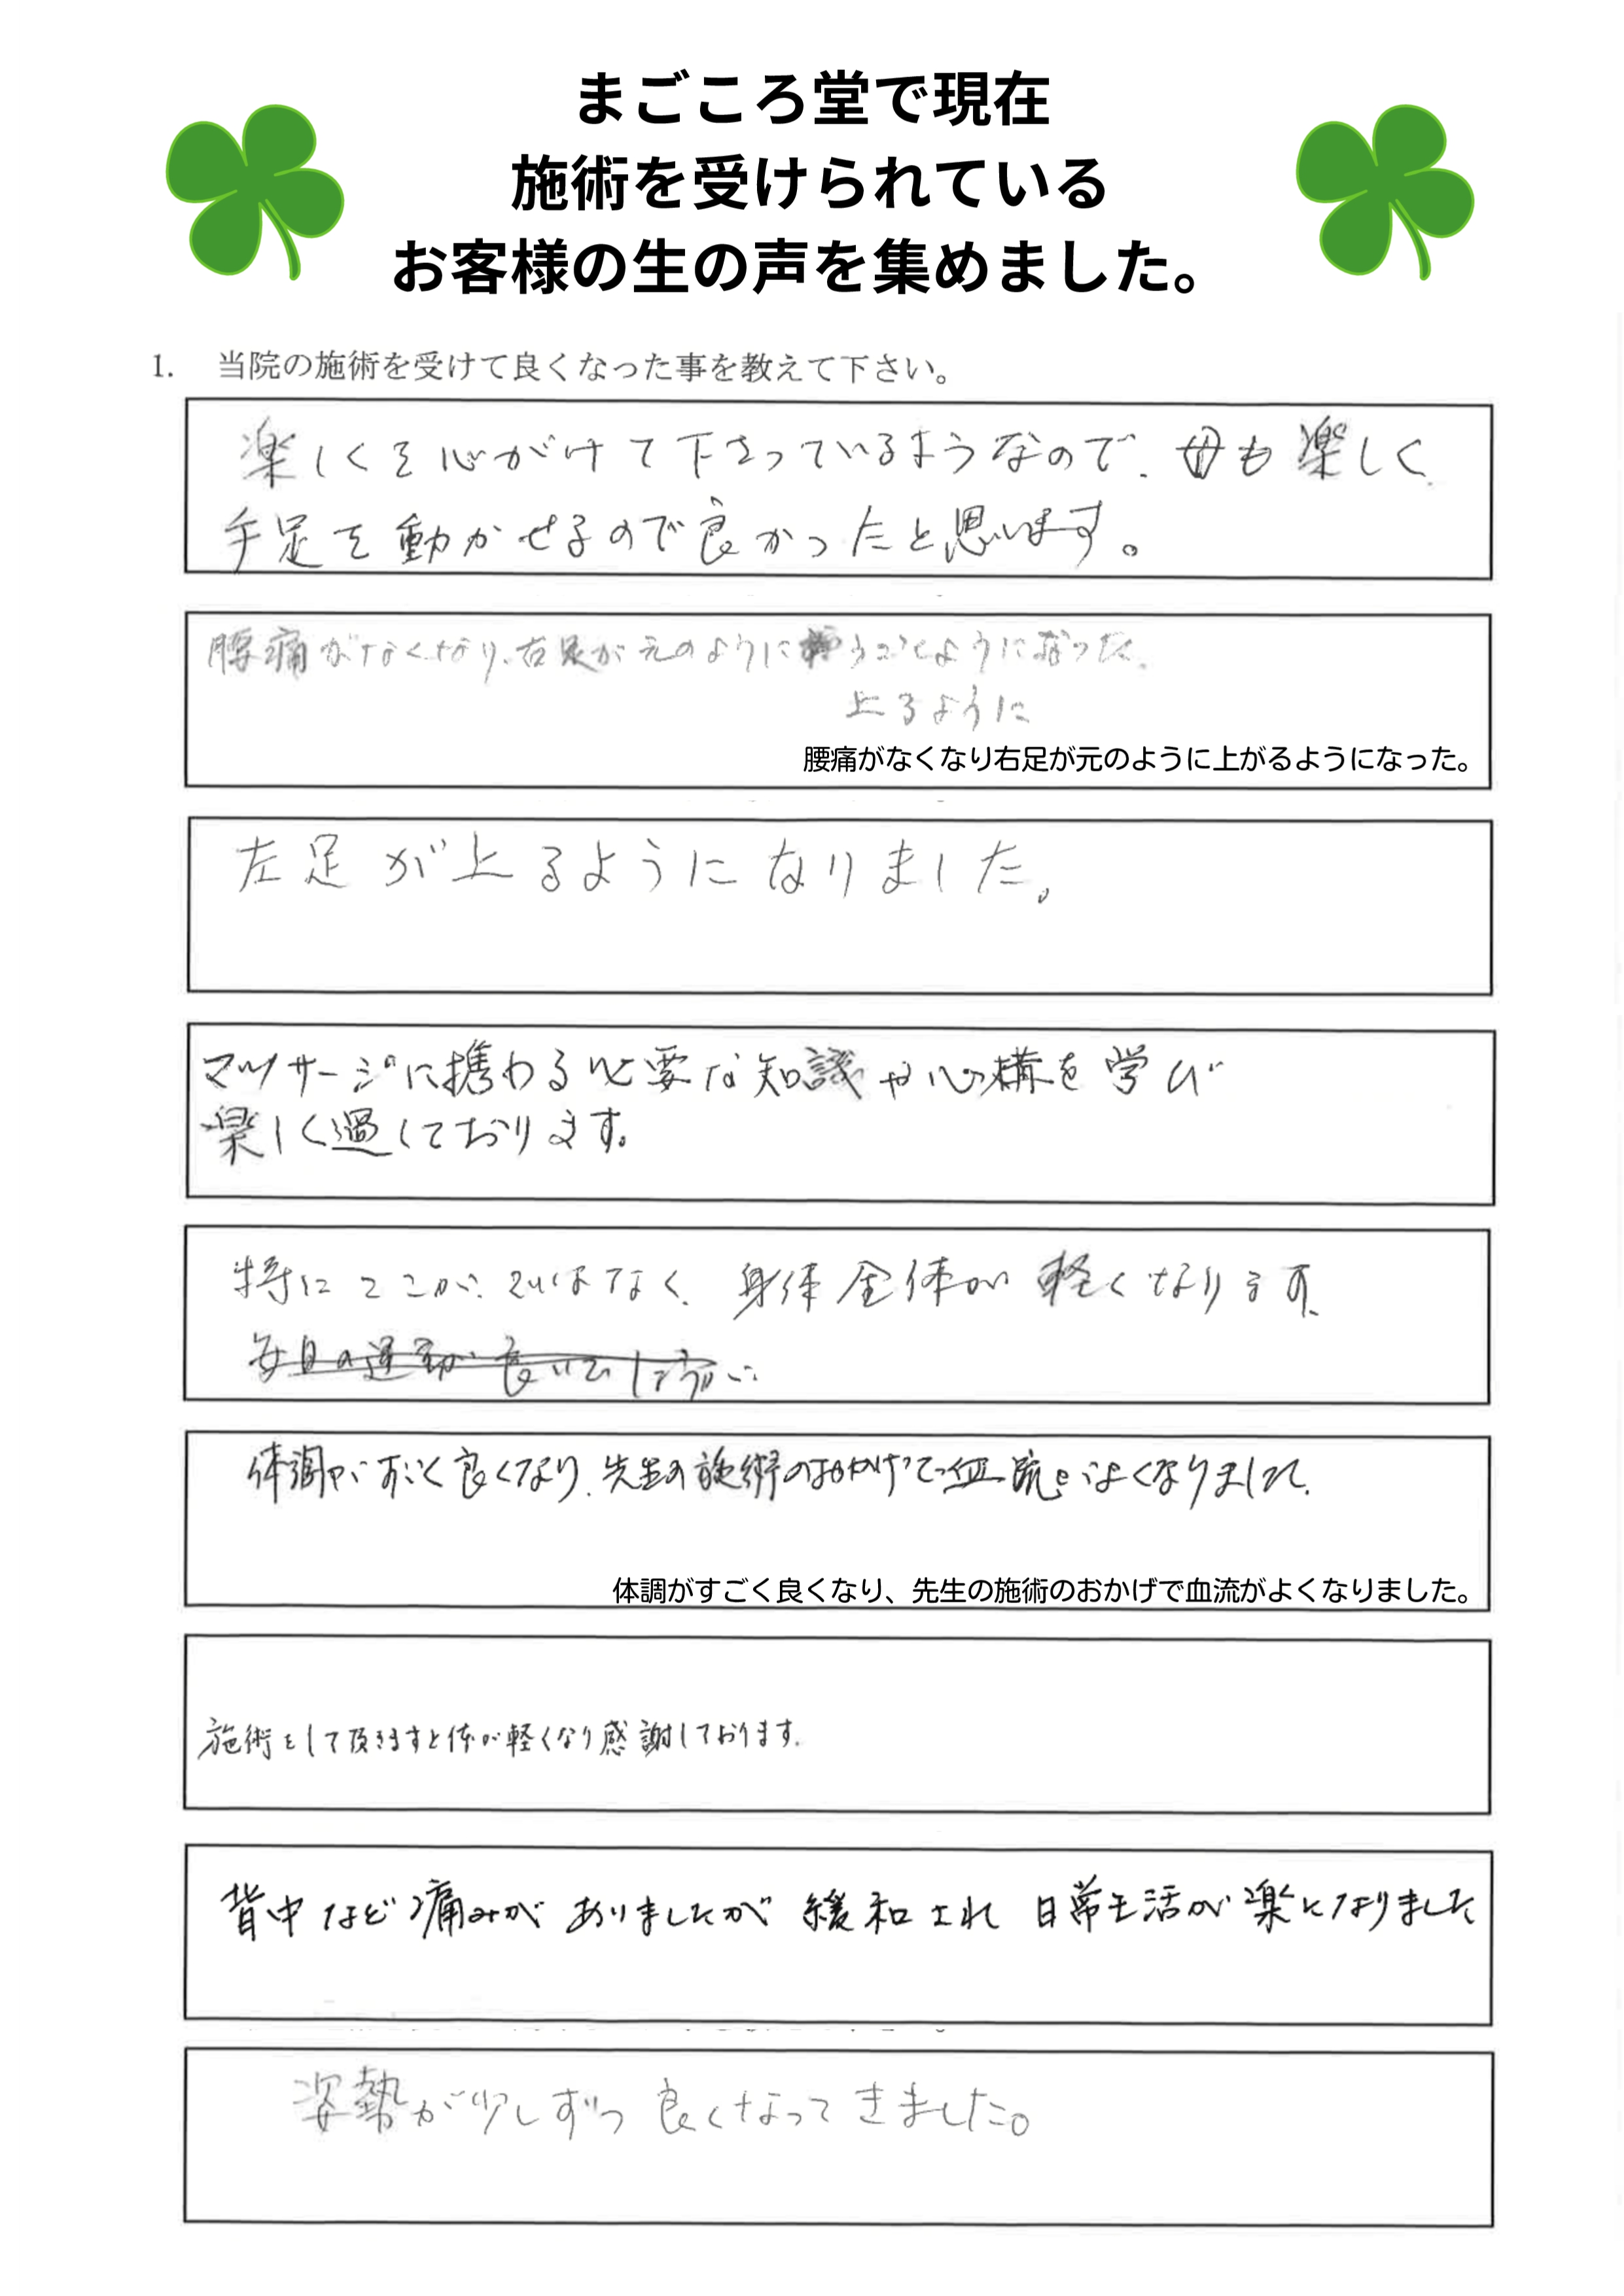 まごころ堂で現在
施術を受けられている
お客様の生の声を集めました。
1. 当院の施術を受けて良くなった事を教えて下さい。
楽しくを心がけて下さっているようなので、母も楽しく
手足を動かせるので良かったと思います。
腰痛がなくなり、右足が元のように ようになった。
上るように
腰痛がなくなり右足が元のように上がるようになった。
左足が上るようになりました。
マッサージに携わる必要な知識や心構を学び
楽しく過しております。
特にここが、ではなく、身体全体が軽くなります。
毎日の運動が良いでしょうが
体調がすごく良くなり、先生の施術のおかげで血流がよくなりました。
体調がすごく良くなり、先生の施術のおかげで血流がよくなりました。
施術をして頂きますと体が軽くなり感謝しております。
背中など痛みがありましたが 緩和され 日常生活が楽になりました
姿勢が少しずつ良くなってきました。